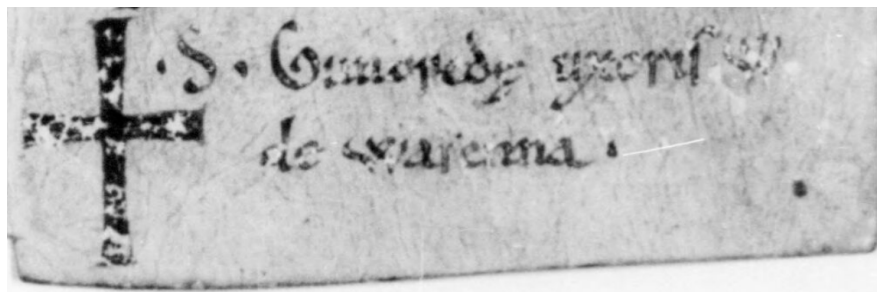 ·S· Gunoredę uxoris W
de warenna ·